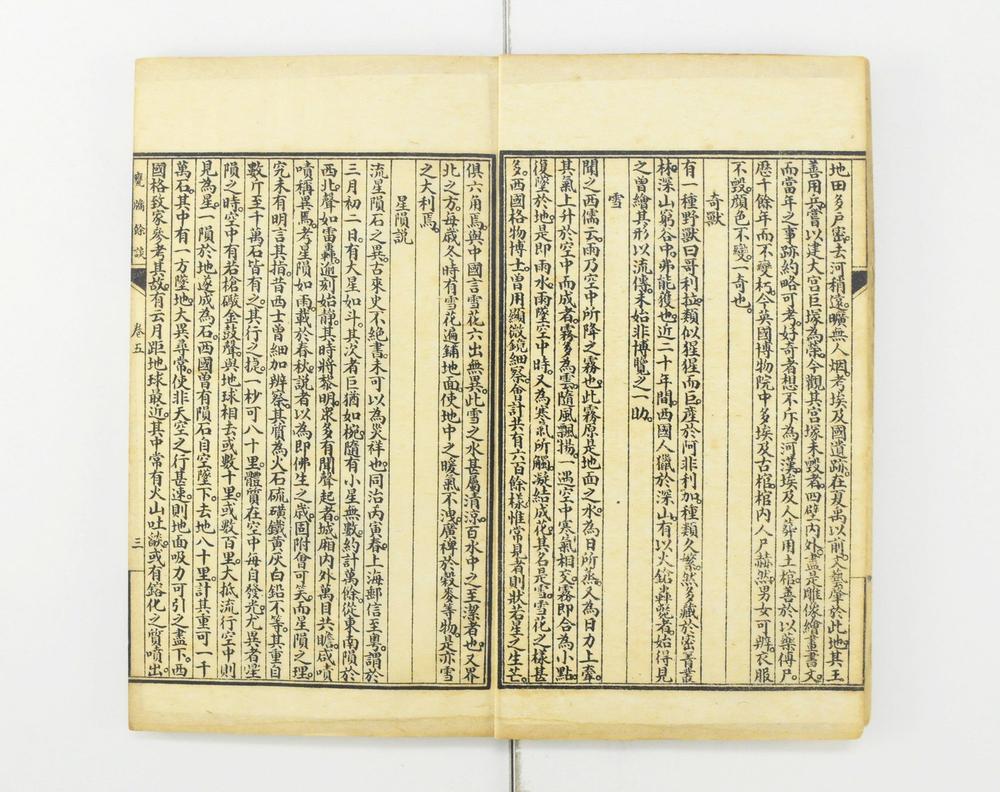 地田多戶密去河稍遠曠無人烟考埃及國遺跡在夏禹以前文藝肇於此地其王
善用兵嘗以建大宮巨塚為榮今觀其宮塚未毀者四壁內外盡是雕像繪畫書文
而當年之事跡約略可考好奇者想不斥為河漢埃及人葬用土棺善於以藥傅尸
歷千餘年而不變朽今英國博物院中多埃及古棺棺內人尸赫然男女可辨衣服
不毀顏色不變一奇也
奇獸
有一種野獸曰哥利拉類似猩猩而巨產於阿非利加種類久繁然多藏於密箐叢
林深山窮谷中弗能獲也近二十年間西國人獵於深山有以火鎗轟斃者始得見
之曾繪其形以流傳未始非博覽之一助
雪
聞之西儒云雨乃空中所降之霧也此霧原是地面之水為日所蒸又為日力上牽
其氣上升於空中而成者霧多為雲隨風飄揚一遇空中寒氣相交霧即合為小點
復墜於地是即雨水雨墜空中時又為寒氣所觸凝結成花其名是雪雪花之樣甚
多西國格物博士曾用顯微鏡細察會計共有六百餘樣惟常見者則狀若星之生芒
俱六角焉與中國言雪花六出無異此雪之水甚屬清涼百水中之至潔者也又界
北之方每歲冬時有雪花遍鋪地面使地中之暖氣不洩廣裨於穀麥等物是亦雪
之大利焉
星隕說
流星隕石之異古來史不絕書未可以為災祥也同治丙寅春上海郵信至粵謂於
三月初二日有大星如斗其次者巨猶如椀隨有小星無數約計萬餘從東南隕於
西北聲如雷轟逾刻始靜其時將黎明衆多有聞聲起者城廂內外萬目共瞻咸嘖
嘖稱異焉考星隕如雨載於春秋說者以為即佛生之歲固附會可笑而星隕之理
究未有明言其指昔西士曾細加辨察其質為火石硫磺鐵黃灰白鉛不等其重自
數斤至千萬石皆有之其行之捷一秒可八十里體質在空中每自發光尤異者星
隕之時空中有若槍礮金鼓聲與地球相去或數十里或數百里大抵流行空中則
見為星一隕於地遂成為石西國曾有隕石自空墜下去地八十里計其重可一千
萬石其中有一方墜地大異尋常使非天空之行甚速則地面吸力可引之盡下西
國格致家參考其故有云月距地球最近其中常有火山吐燄或有鎔化之質噴出
甕牖餘談
卷五
三